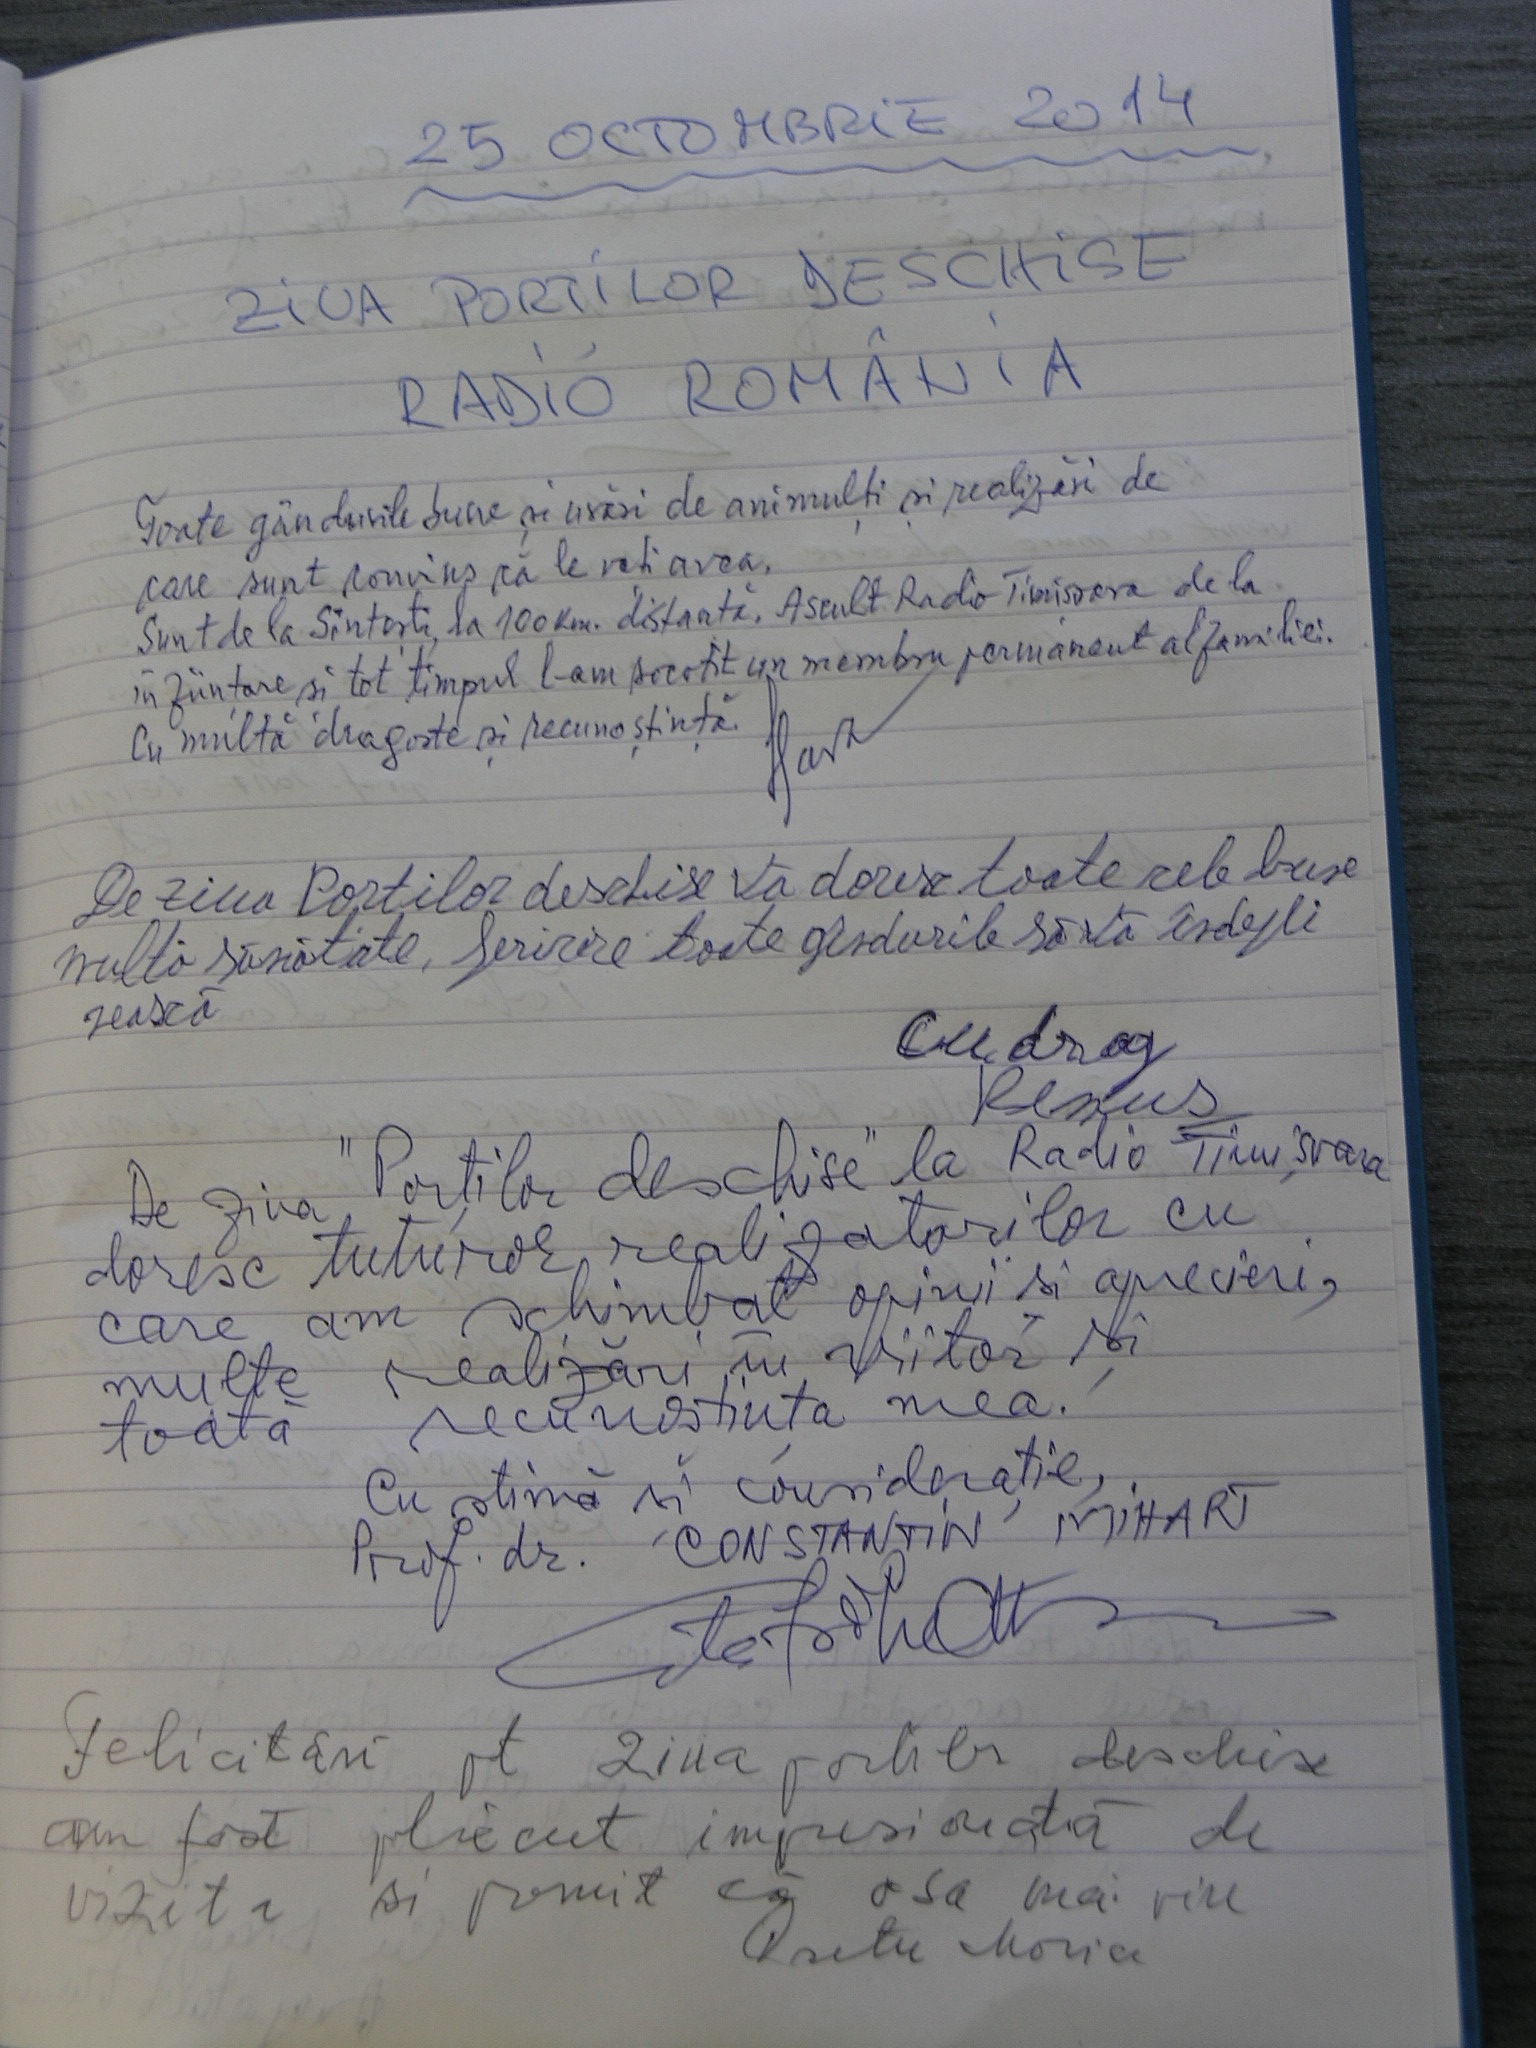 25 OCTOMBRIE 2014
ZIUA PORȚILOR DESCHISE
RADIO ROMÂNIA
Toate gândurile bune și urări de animulți și realizări de
care sunt convins că le veti avea.
Sunt de la 100 km. distantă. Ascult Radio Timișoara de la
înfiintare și tot timpul l-am socotit un membru permanent al familiei.
Cu multă dragoste și recunoștință.
De ziua Portilor deschise va doresc toate cele bune
multă sănătate, fericire toate gîndurile să vă îndepli
nească
Cu drag
Remus
De ziua "Porților deschise" la Radio Timișoara
doresc tuturor realizatorilor cu
care am schimbat opinii si aprecieri,
multe realizări în viitor și
toată recunostința mea!
Cu stimă si considerație,
Prof. dr. CONSTANTIN MIHART
Felicitări pt Ziua portilor deschise
am fost plăcut impresionată de
vizita si promit că o sa mai vin
Maria